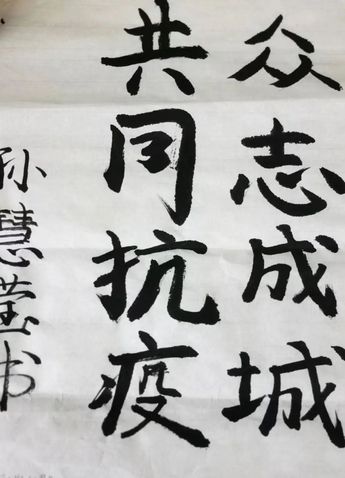 众志成城
共同抗疫
孙慧莹书